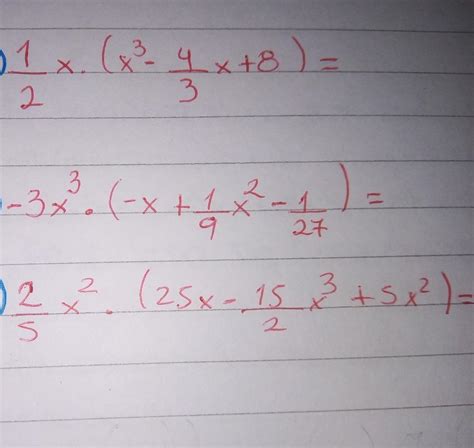 ) 1/2 x · (x³ - 4/3 x + 8) =
-3x³ · (-x + 1/9 x² - 1/27) =
) 2/5 x² · (25x - 15/2 x³ + 5x²) =